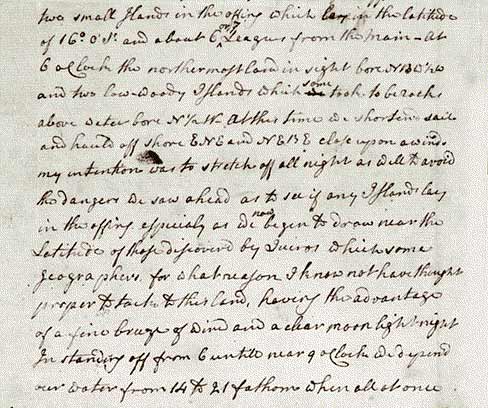 two small Islands in the offing which lay in the latitude
of 16° 0' S. and about 6 or 7 Leagues from the main - At
6 oClock the northermost land in sight bore NBW½W
and two low woody Islands which some took to be rocks
above water bore N½W. At this time we shortend sail
and hauld off shore ENE and NEBE close upon a wind.
my intention was to stretch off all night as well to avoid
the dangers we saw ahead as to see if any Islands lay
in the offing especialy as we now begin to draw near the
Latitude of those discoverd by Quiros which some
Geographers, for what reason I know not have thought
proper to tack to this land, having the advantage
of a fine breeze of wind and a clear moon light night
In standing off from 6 untill near 9 oClock we deepend
our water from 14 to 21 fathom when all at once